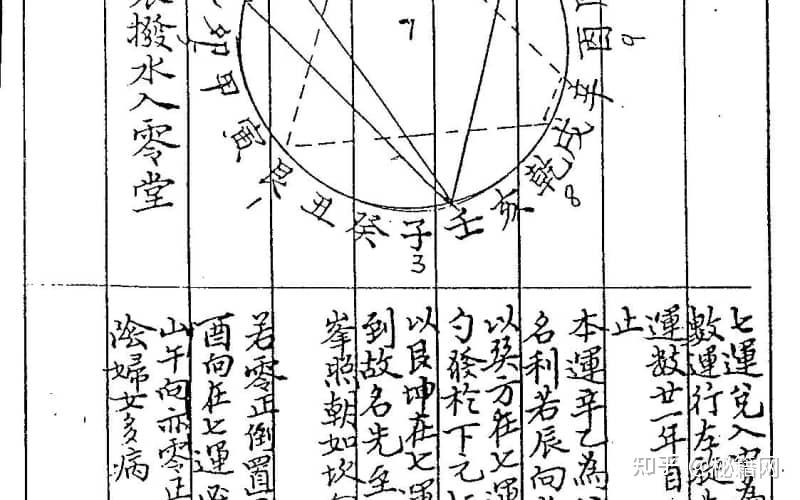 撥水入零堂
7
酉
9
辛
戌
乾
8
亥
壬
子
3
癸
丑
艮
1
寅
甲
卯
七運兌入中
數運行左
運數廿一年自
止
本運辛乙為
名利若辰向
以癸方在七運
勺發於下元
以艮坤在七運
到故名先至
峯照朝如坎
若零正倒置
酉向在七運
山午向亦零正
陰婦女多病
知乎 @秘籍网